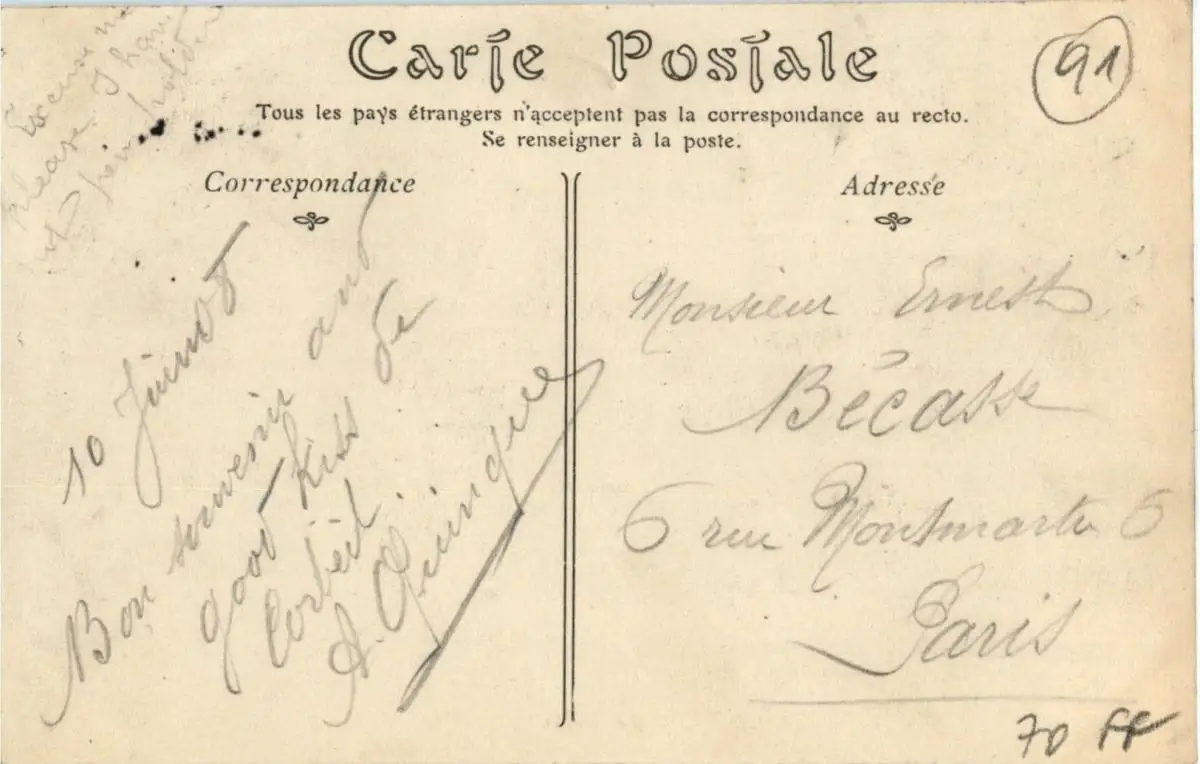 Carte Postale
91
Tous les pays étrangers n'acceptent pas la correspondance au recto.
Se renseigner à la poste.
Correspondance
Adresse
please I have
pen holder
10 Juin 08
Bon souvenir and
good kiss de
Corbeil
A. Quinque
Monsieur Ernest
Bécasse
6 rue Montmartre 6
Paris
70 FF